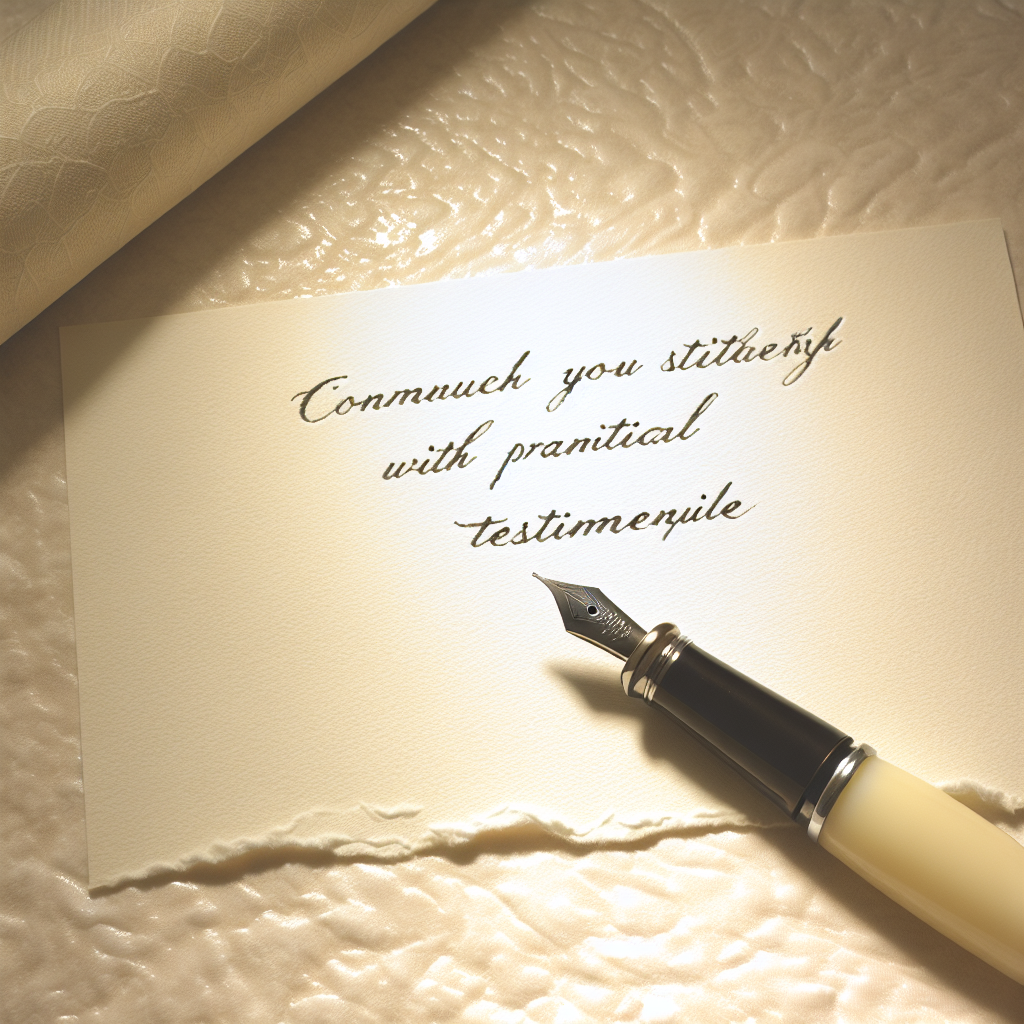 Conmnuch you stitaenyk
with pranitical
testimenuile